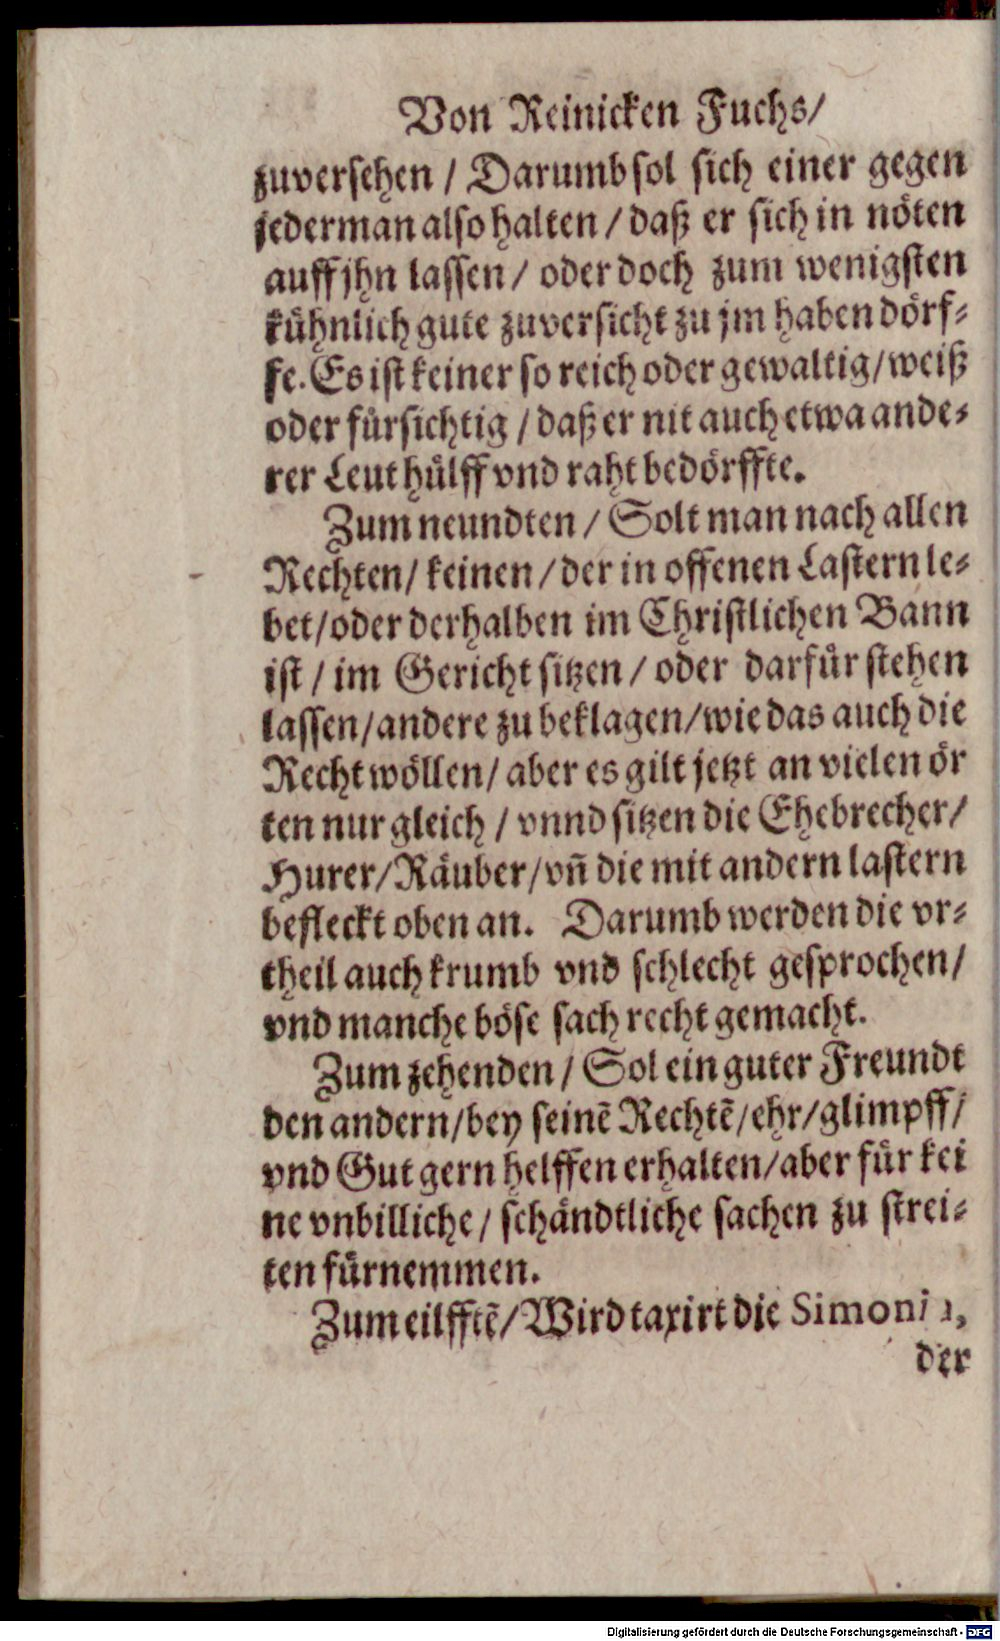 Von Reinicken Fuchs/
zuversehen / Darumb sol sich einer gegen
jederman also halten / daß er sich in nöten
auff jhn lassen / oder doch zum wenigsten
kühnlich gute zuversicht zu jm haben dörf-
fe. Es ist keiner so reich oder gewaltig / weiß
oder fürsichtig / daß er nit auch etwa ande-
rer Leut hülff vnd raht bedörffte.
Zum neundten / Solt man nach allen
Rechten / keinen / der in offenen Lastern le-
bet / oder derhalben im Christlichen Bann
ist / im Gericht sitzen / oder darfür stehen
lassen / andere zu beklagen / wie das auch die
Recht wöllen / aber es gilt jetzt an vielen ör
ten nur gleich / vnnd sitzen die Ehebrecher /
Hurer / Räuber / vn̄ die mit andern lastern
befleckt oben an. Darumb werden die vr-
theil auch krumb vnd schlecht gesprochen /
vnd manche böse sach recht gemacht.
Zum zehenden / Sol ein guter Freundt
den andern / bey seinē Rechtē / ehr / glimpff /
vnd Gut gern helffen erhalten / aber für kei
ne vnbilliche / schändtliche sachen zu strei-
ten fürnemmen.
Zum eilfftē / Wird taxirt die Simonia,
der
Digitalisierung gefördert durch die Deutsche Forschungsgemeinschaft - DFG